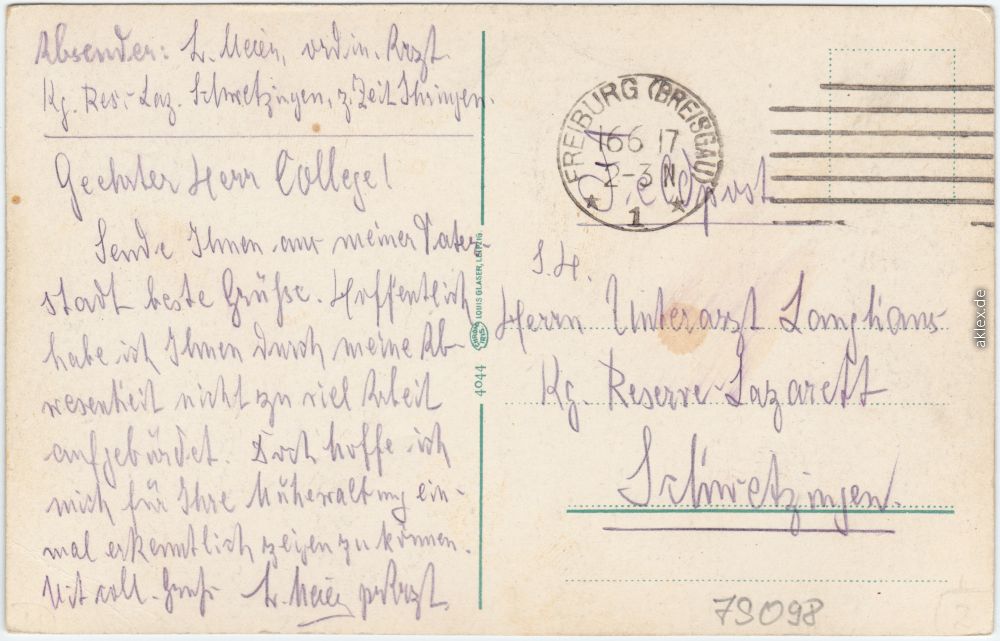 Absender: L. Meier, ordin. Arzt
Kg. Res.-Laz. Schwetzingen, z. Zeit Ihringen.
Geehrter Herr College!
Sende Ihnen aus meiner Vater-
stadt beste Grüße. Hoffentlich
habe ich Ihnen durch meine Ab-
wesenheit nicht zu viel Arbeit
aufgebürdet. Doch hoffe ich
mich für Ihre Mühewaltung ein-
mal erkenntlich zeigen zu können.
Mit coll. Gruß L. Meier Arzt.
4044
LOUIS GLASER, LEIPZIG
FREIBURG (BREISGAU)
16 6 17
2-3 N
* 1 *
Feldpost
S. H.
Herrn Unterarzt Langhans
Kg. Reserve-Lazarett
Schwetzingen.
79098
2
aklex.de